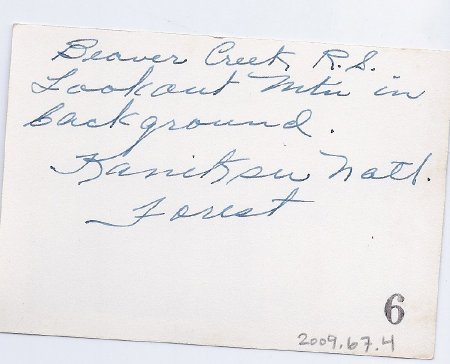 Beaver Creek, R.S.
Lookout Mtn in
background.
Kaniksu Natl.
Forest
6
2009.67.4